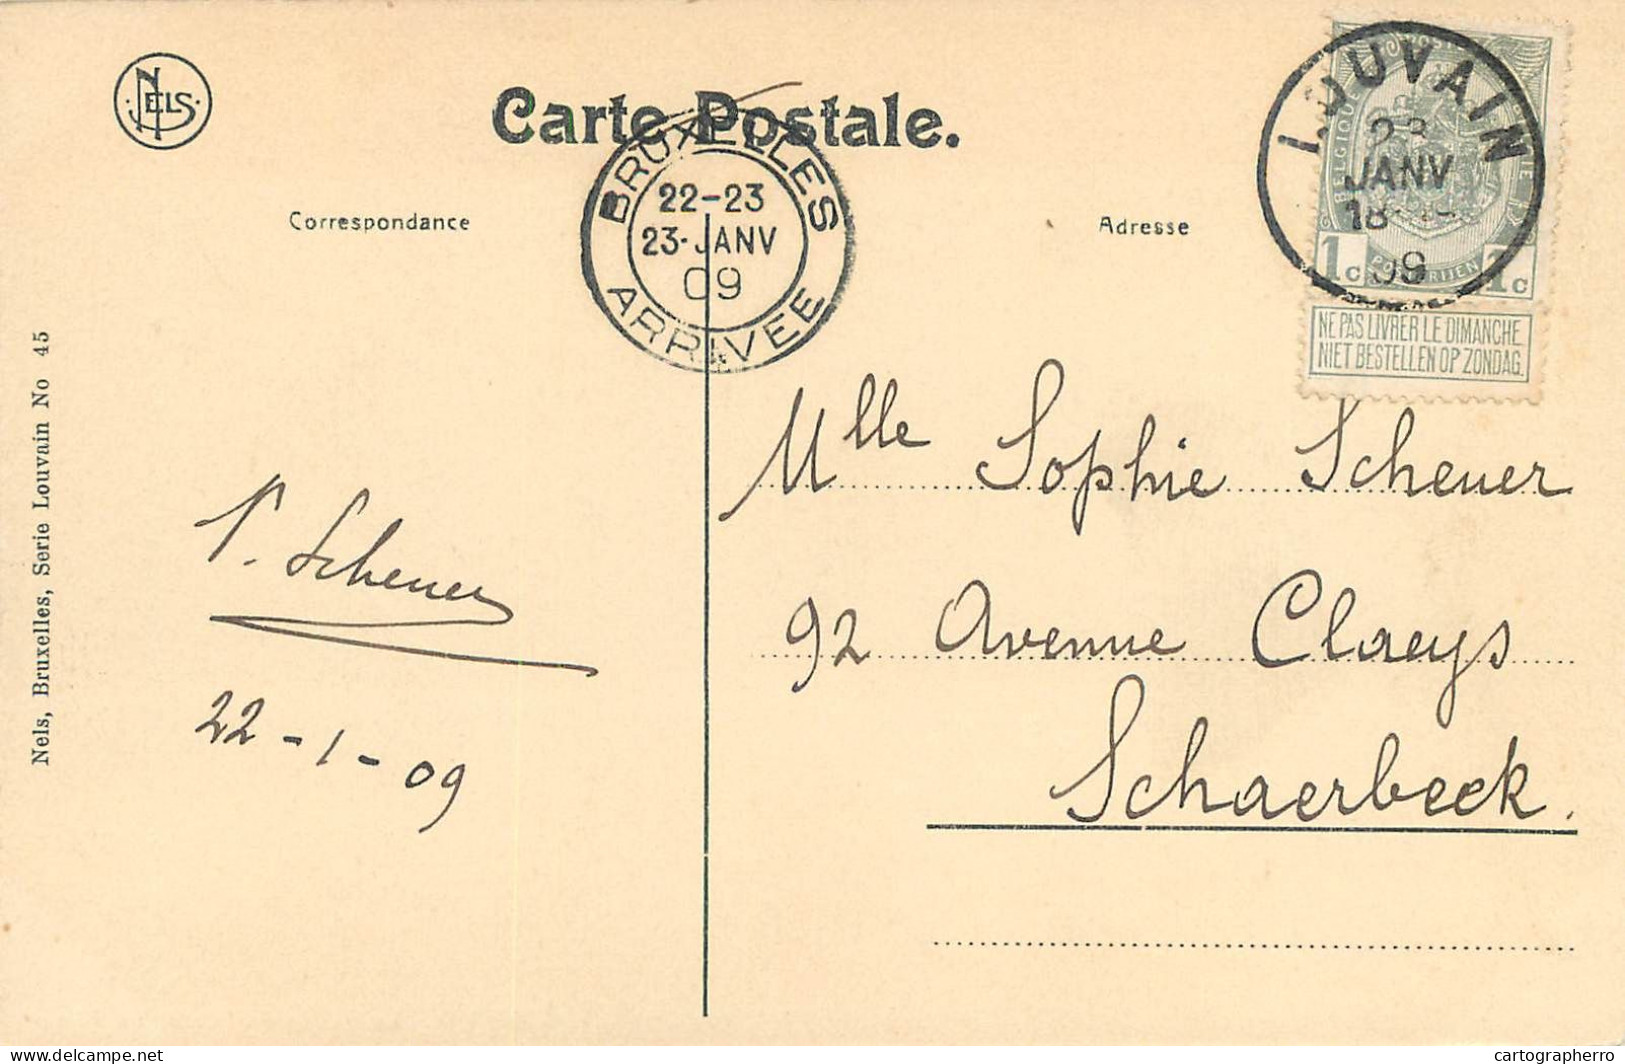 NELS
Carte Postale.
BRUXELLES
22-23
23-JANV
09
ARRIVEE
LOUVAIN
23
JANV
18-
09
BELGIQUE
1c
POSTERIJEN
1c
NE PAS LIVRER LE DIMANCHE
NIET BESTELLEN OP ZONDAG.
Correspondance
Adresse
Mlle Sophie Scheuer
92 Avenue Claeys
Schaerbeek.
P. Scheuer
22-1-09
Nels, Bruxelles, Serie Louvain No 45
delcampe.net
cartographerro